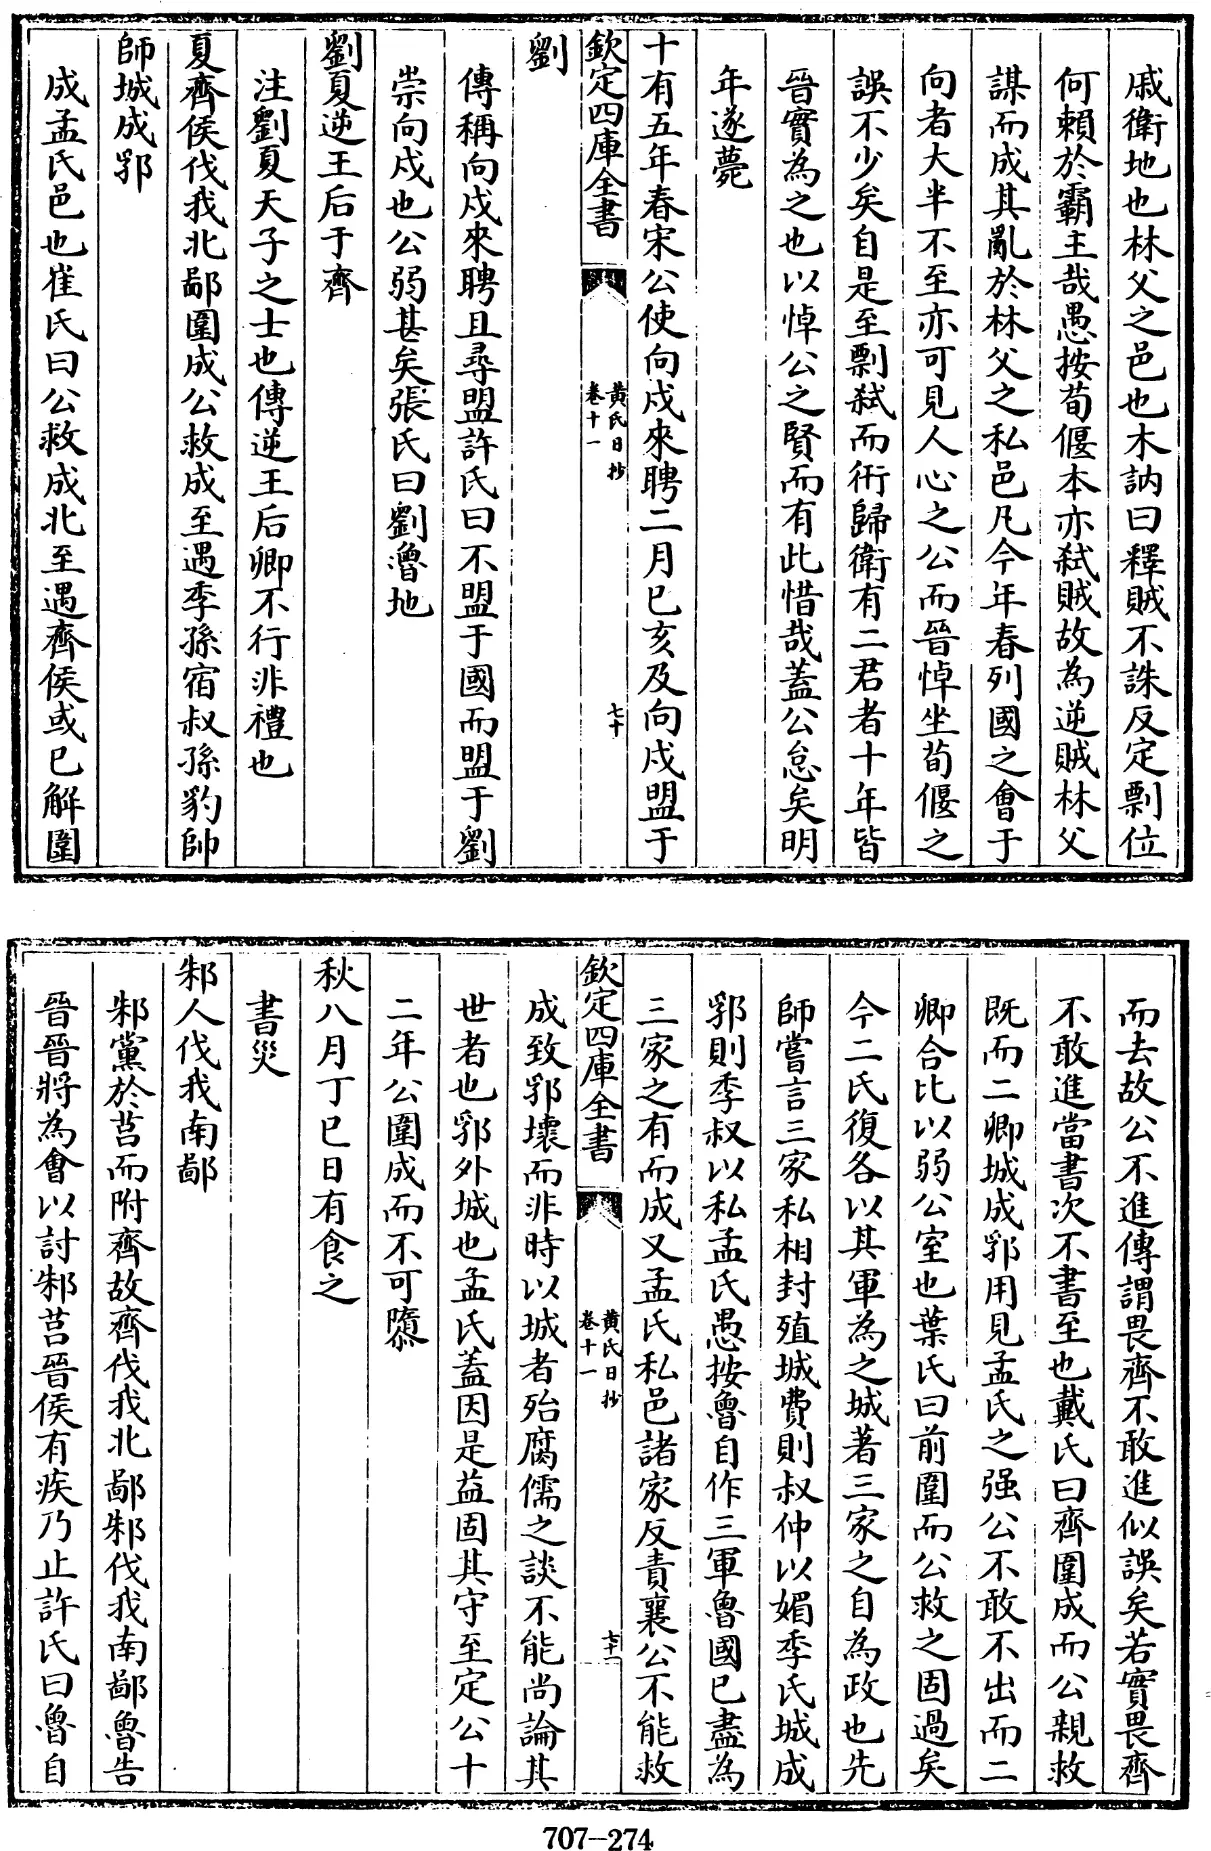 戚衛地也林父之邑也木訥曰釋賊不誅反定剽位
何賴於霸主哉愚按荀偃本亦弑賊故為逆賊林父
謀而成其亂於林父之私邑凡今年春列國之會于
向者大半不至亦可見人心之公而晉悼坐荀偃之
誤不少矣自是至剽弑而衎歸衛有二君者十年皆
晉實為之也以悼公之賢而有此惜哉蓋公怠矣明
年遂薨
十有五年春宋公使向戌來聘二月已亥及向戌盟于
欽定四庫全書
黄氏日抄
卷十一
七十
劉
傳稱向戌來聘且尋盟許氏曰不盟于國而盟于劉
崇向戌也公弱甚矣張氏曰劉魯地
劉夏逆王后于齊
注劉夏天子之士也傳逆王后卿不行非禮也
夏齊侯伐我北鄙圍成公救成至遇季孫宿叔孫豹帥
師城成郛
成孟氏邑也崔氏曰公救成北至遇齊侯或已解圍
而去故公不進傳謂畏齊不敢進似誤矣若實畏齊
不敢進當書次不書至也戴氏曰齊圍成而公親救
既而二卿城成郛用見孟氏之强公不敢不出而二
卿合比以弱公室也葉氏曰前圍而公救之固過矣
今二氏復各以其軍為之城著三家之自為政也先
師嘗言三家私相封殖城費則叔仲以媚季氏城成
郛則季叔以私孟氏愚按魯自作三軍魯國已盡為
三家之有而成又孟氏私邑諸家反責襄公不能救
欽定四庫全書
黄氏日抄
卷十一
七十一
成致郛壊而非時以城者殆腐儒之談不能尚論其
世者也郛外城也孟氏蓋因是益固其守至定公十
二年公圍成而不可隳
秋八月丁巳日有食之
書災
邾人伐我南鄙
邾黨於莒而附齊故齊伐我北鄙邾伐我南鄙魯告
晉晉將為會以討邾莒晉侯有疾乃止許氏曰魯自
707-274